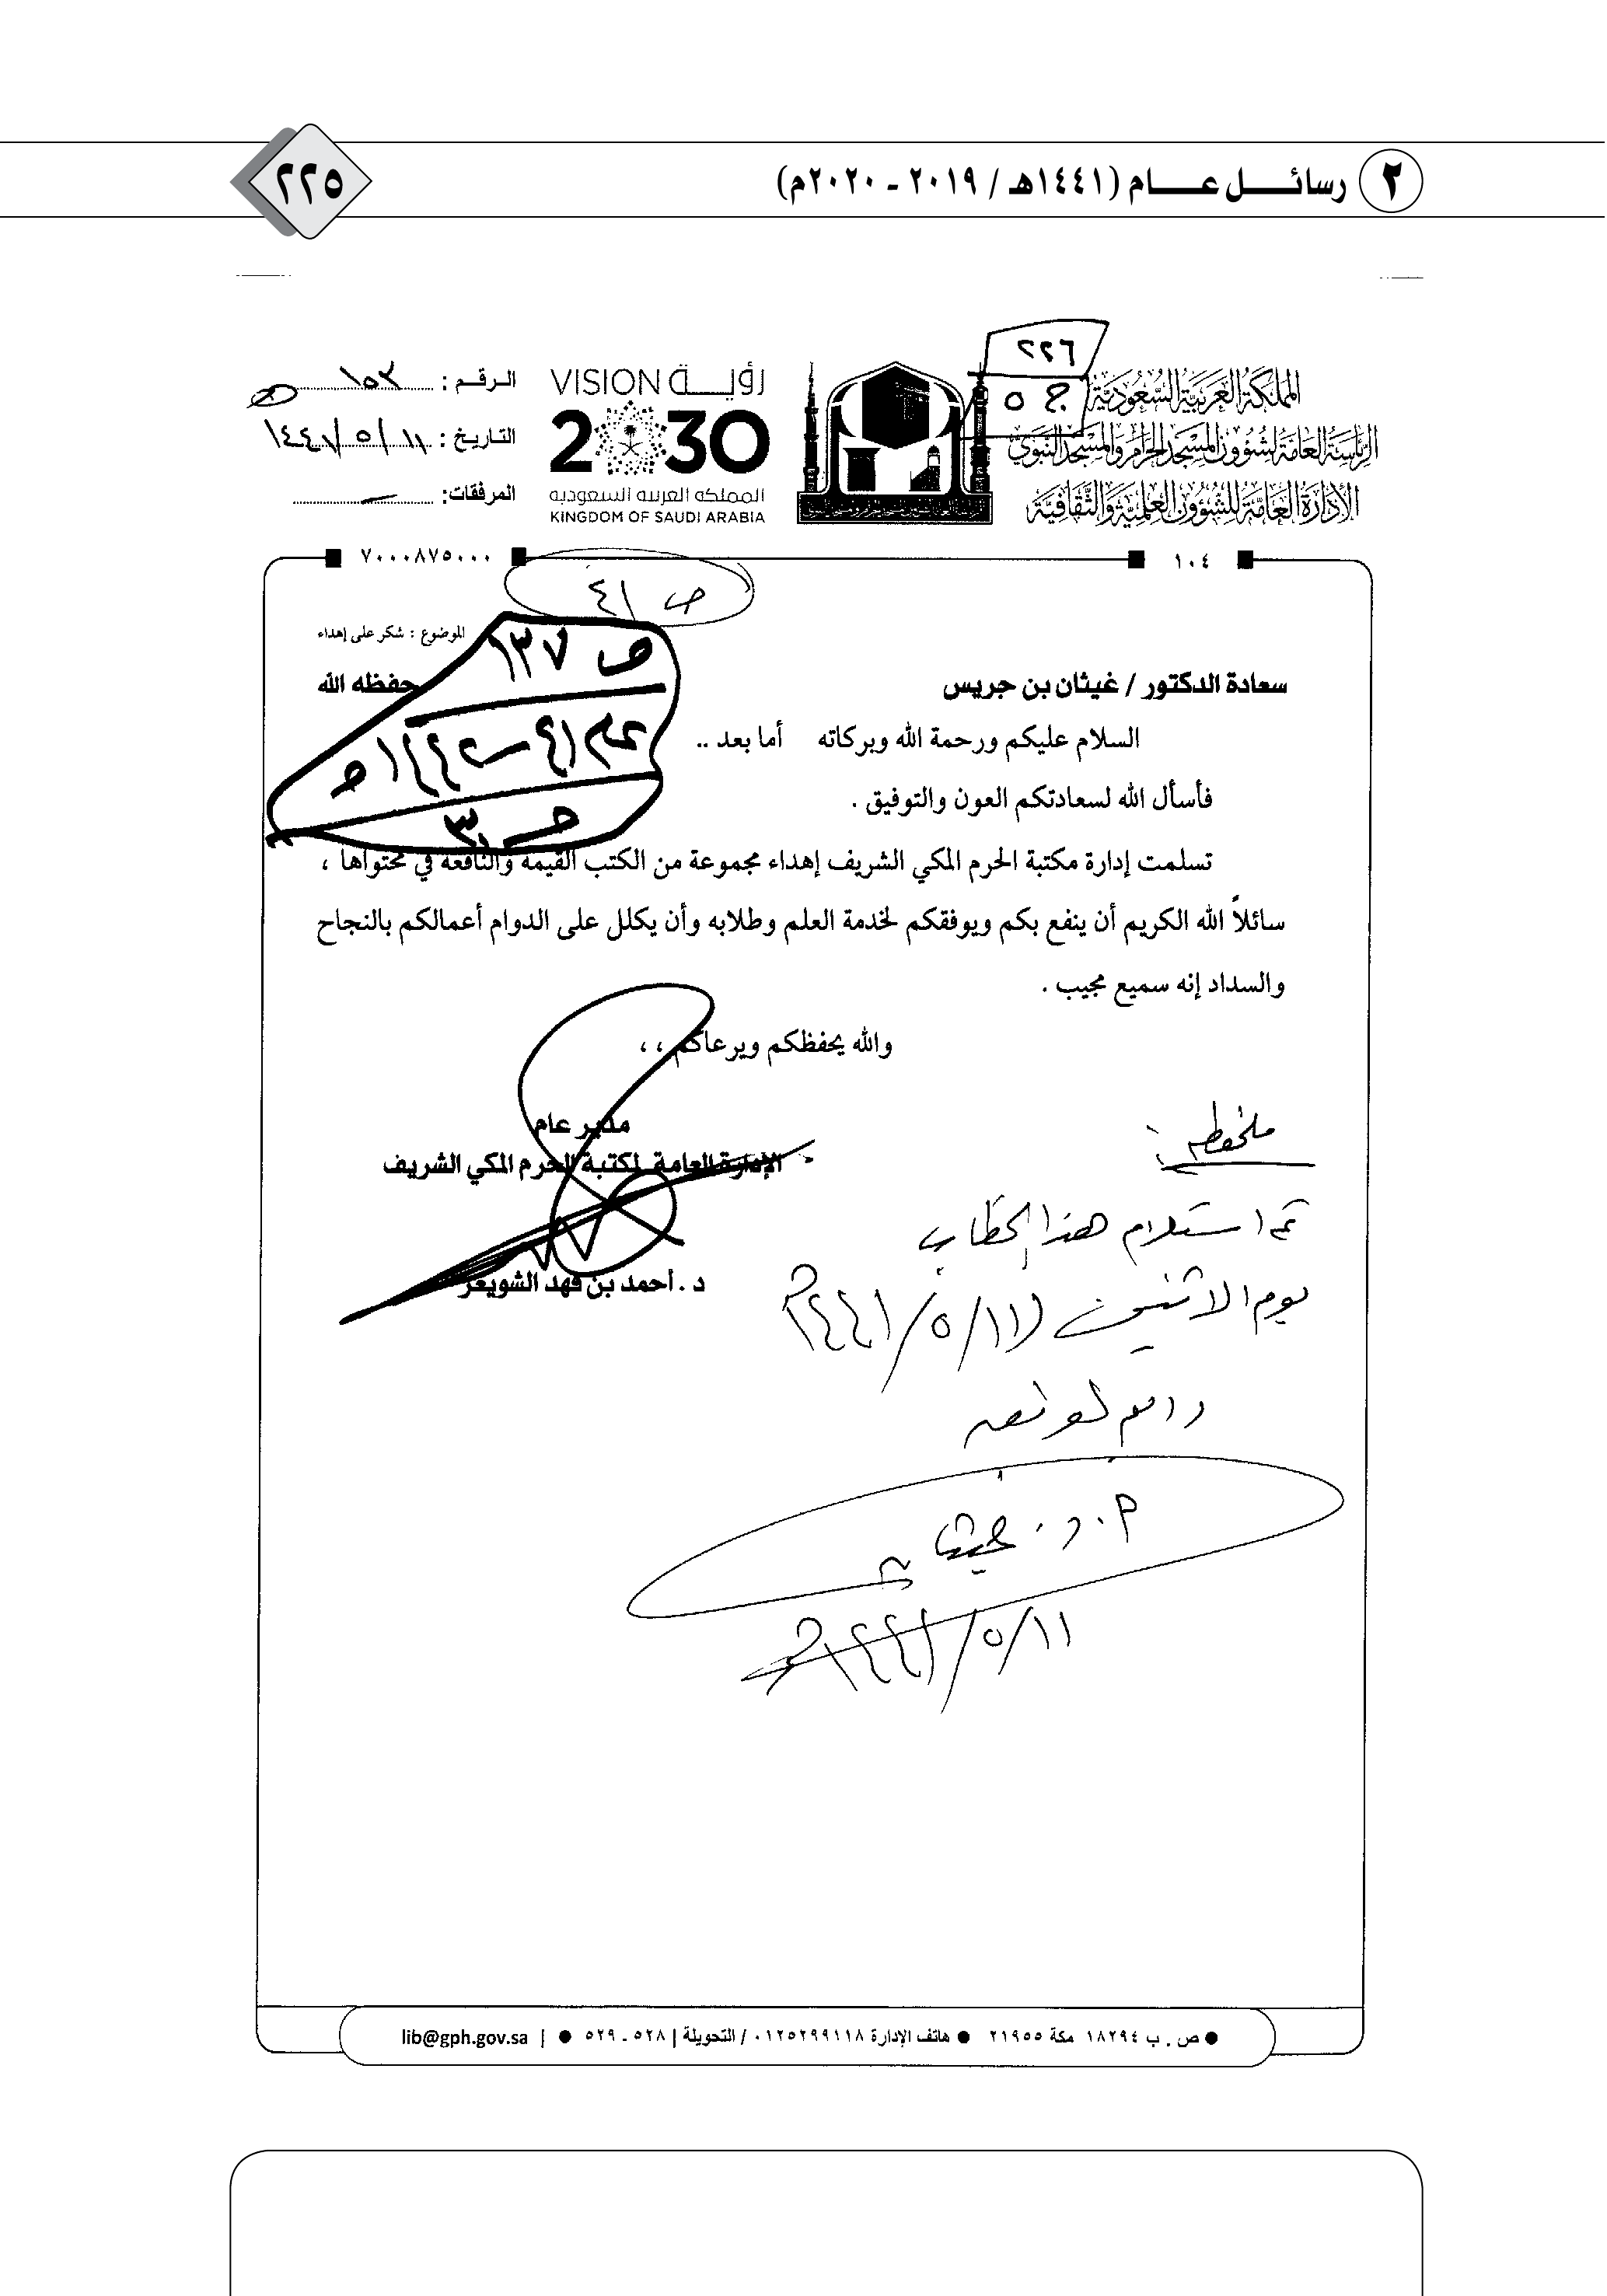 ٢ رسائل عام (١٤٤١هـ / ٢٠١٩ - ٢٠٢٠م)
٢٢٥
٢٢٦
ج ٥
المملكة العربية السعودية
الرئاسة العامة لشؤون المسجد الحرام والمسجد النبوي
الإدارة العامة للشؤون العلمية والثقافية
رؤيـــة VISION
2030
المملكة العربية السعودية
KINGDOM OF SAUDI ARABIA
الرقم : ١٥٣
التاريخ : ١١/٥/١٤٤١
المرفقات:
١٠٤
٧٠٠٠٨٧٥٠٠٠
ص ٤١
الموضوع : شكر على إهداء
ص ١٣٧
عام ٤١-١٤٤٢هـ
سعادة الدكتور / غيثان بن جريس حفظه الله
السلام عليكم ورحمة الله وبركاته أما بعد ..
فأسأل الله لسعادتكم العون والتوفيق .
تسلمت إدارة مكتبة الحرم المكي الشريف إهداء مجموعة من الكتب القيمة والنافعة في محتواها ،
سائلاً الله الكريم أن ينفع بكم ويوفقكم لخدمة العلم وطلابه وأن يكلل على الدوام أعمالكم بالنجاح
والسداد إنه سميع مجيب .
والله يحفظكم ويرعاكم ، ،
مدير عام
الإدارة العامة لمكتبة الحرم المكي الشريف
د . أحمد بن فهد الشويعر
ملحوظة :
تم استلام هذا الخطاب
يوم الاثنين ١١/٥/١٤٤١هـ
أ . د . غيثان
١١/٥/١٤٤١هـ
ص . ب ١٨٢٩٤ مكة ٢١٩٥٥ ● هاتف الإدارة ٠١٢٥٢٩٩١١٨ / التحويلة | ٥٢٨ - ٥٢٩ ● | lib@gph.gov.sa